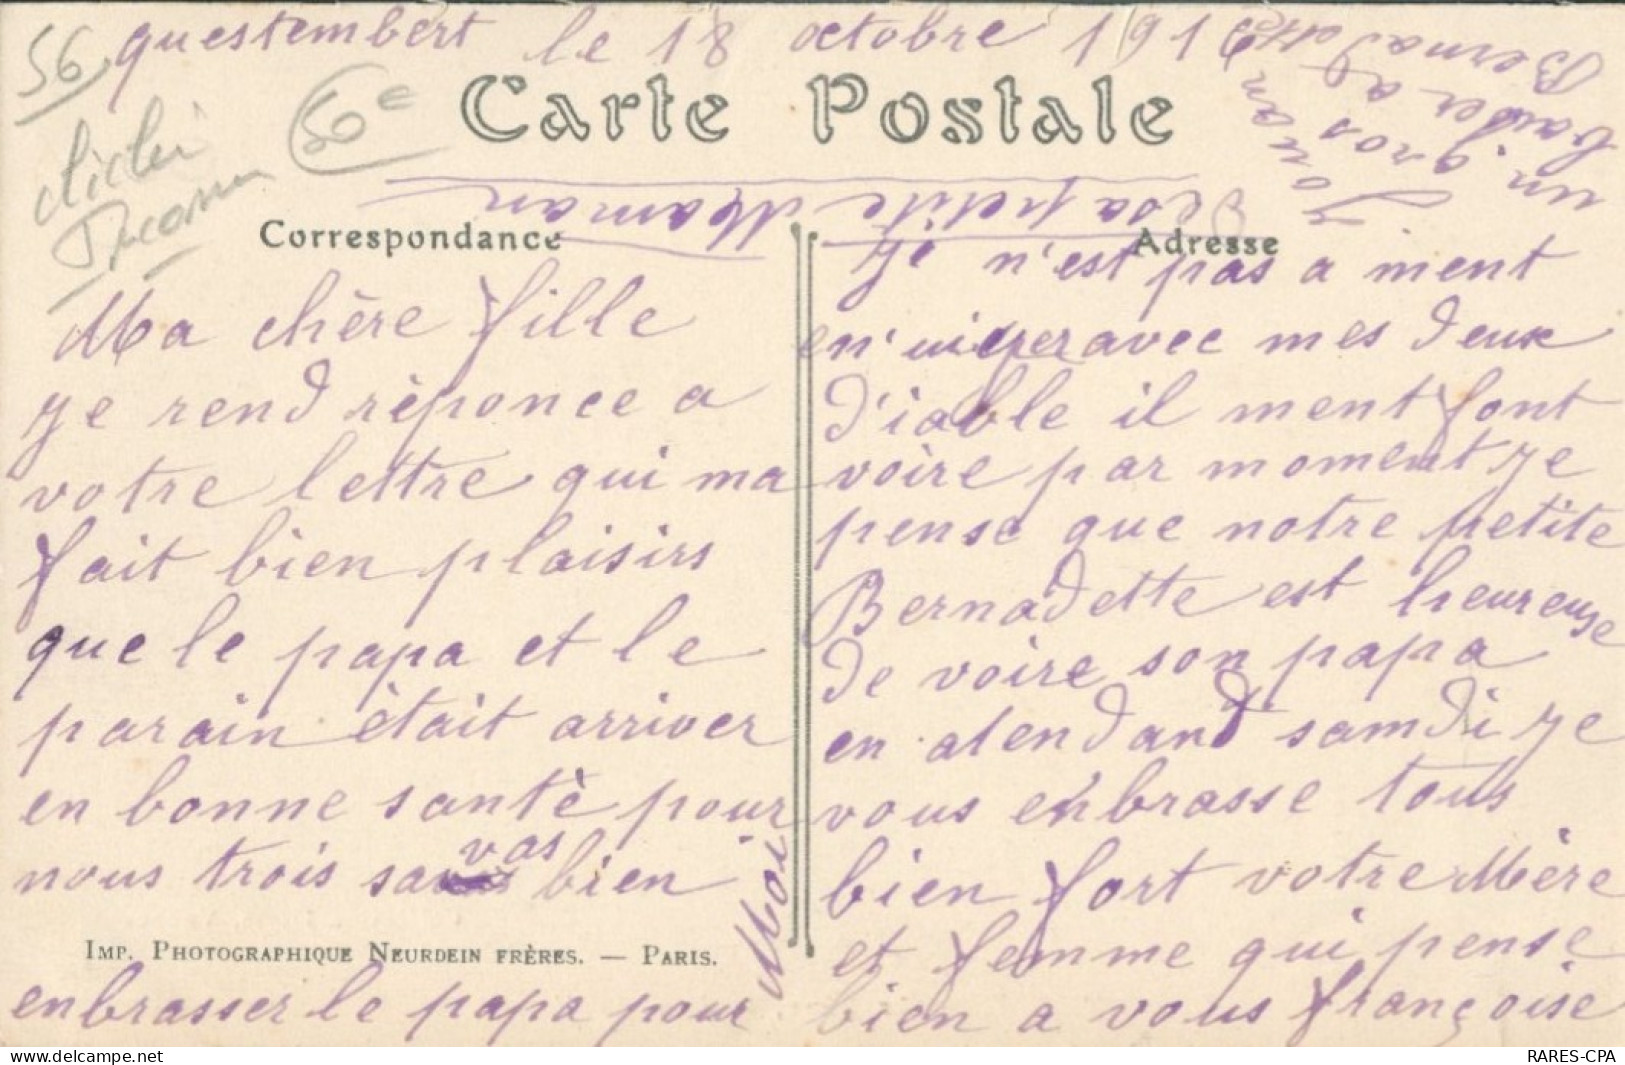 56
questembert le 18 octobre 1913
50e
Carte Postale
Correspondance
Adresse
Ma chère fille
je rend rèponce a
votre lettre qui ma
fait bien plaisirs
que le papa et le
parain ètait arriver
en bonne santè pour
nous trois sa vas bien
Imp. Photographique Neurdein frères. — Paris.
enbrasser le papa pour
Moi
je n'est pas a ment
en'uiyer avec mes deux
d'iable il ment font
voire par moment je
pense que notre petite
Bernadette est heureuse
de voire son papa
en atendand samdi je
vous enbrasse tous
bien fort votre Mère
et femme qui pense
bien a vous françoise
un gros
baiser a
Bernadette
sa petite Maman
RARES-CPA